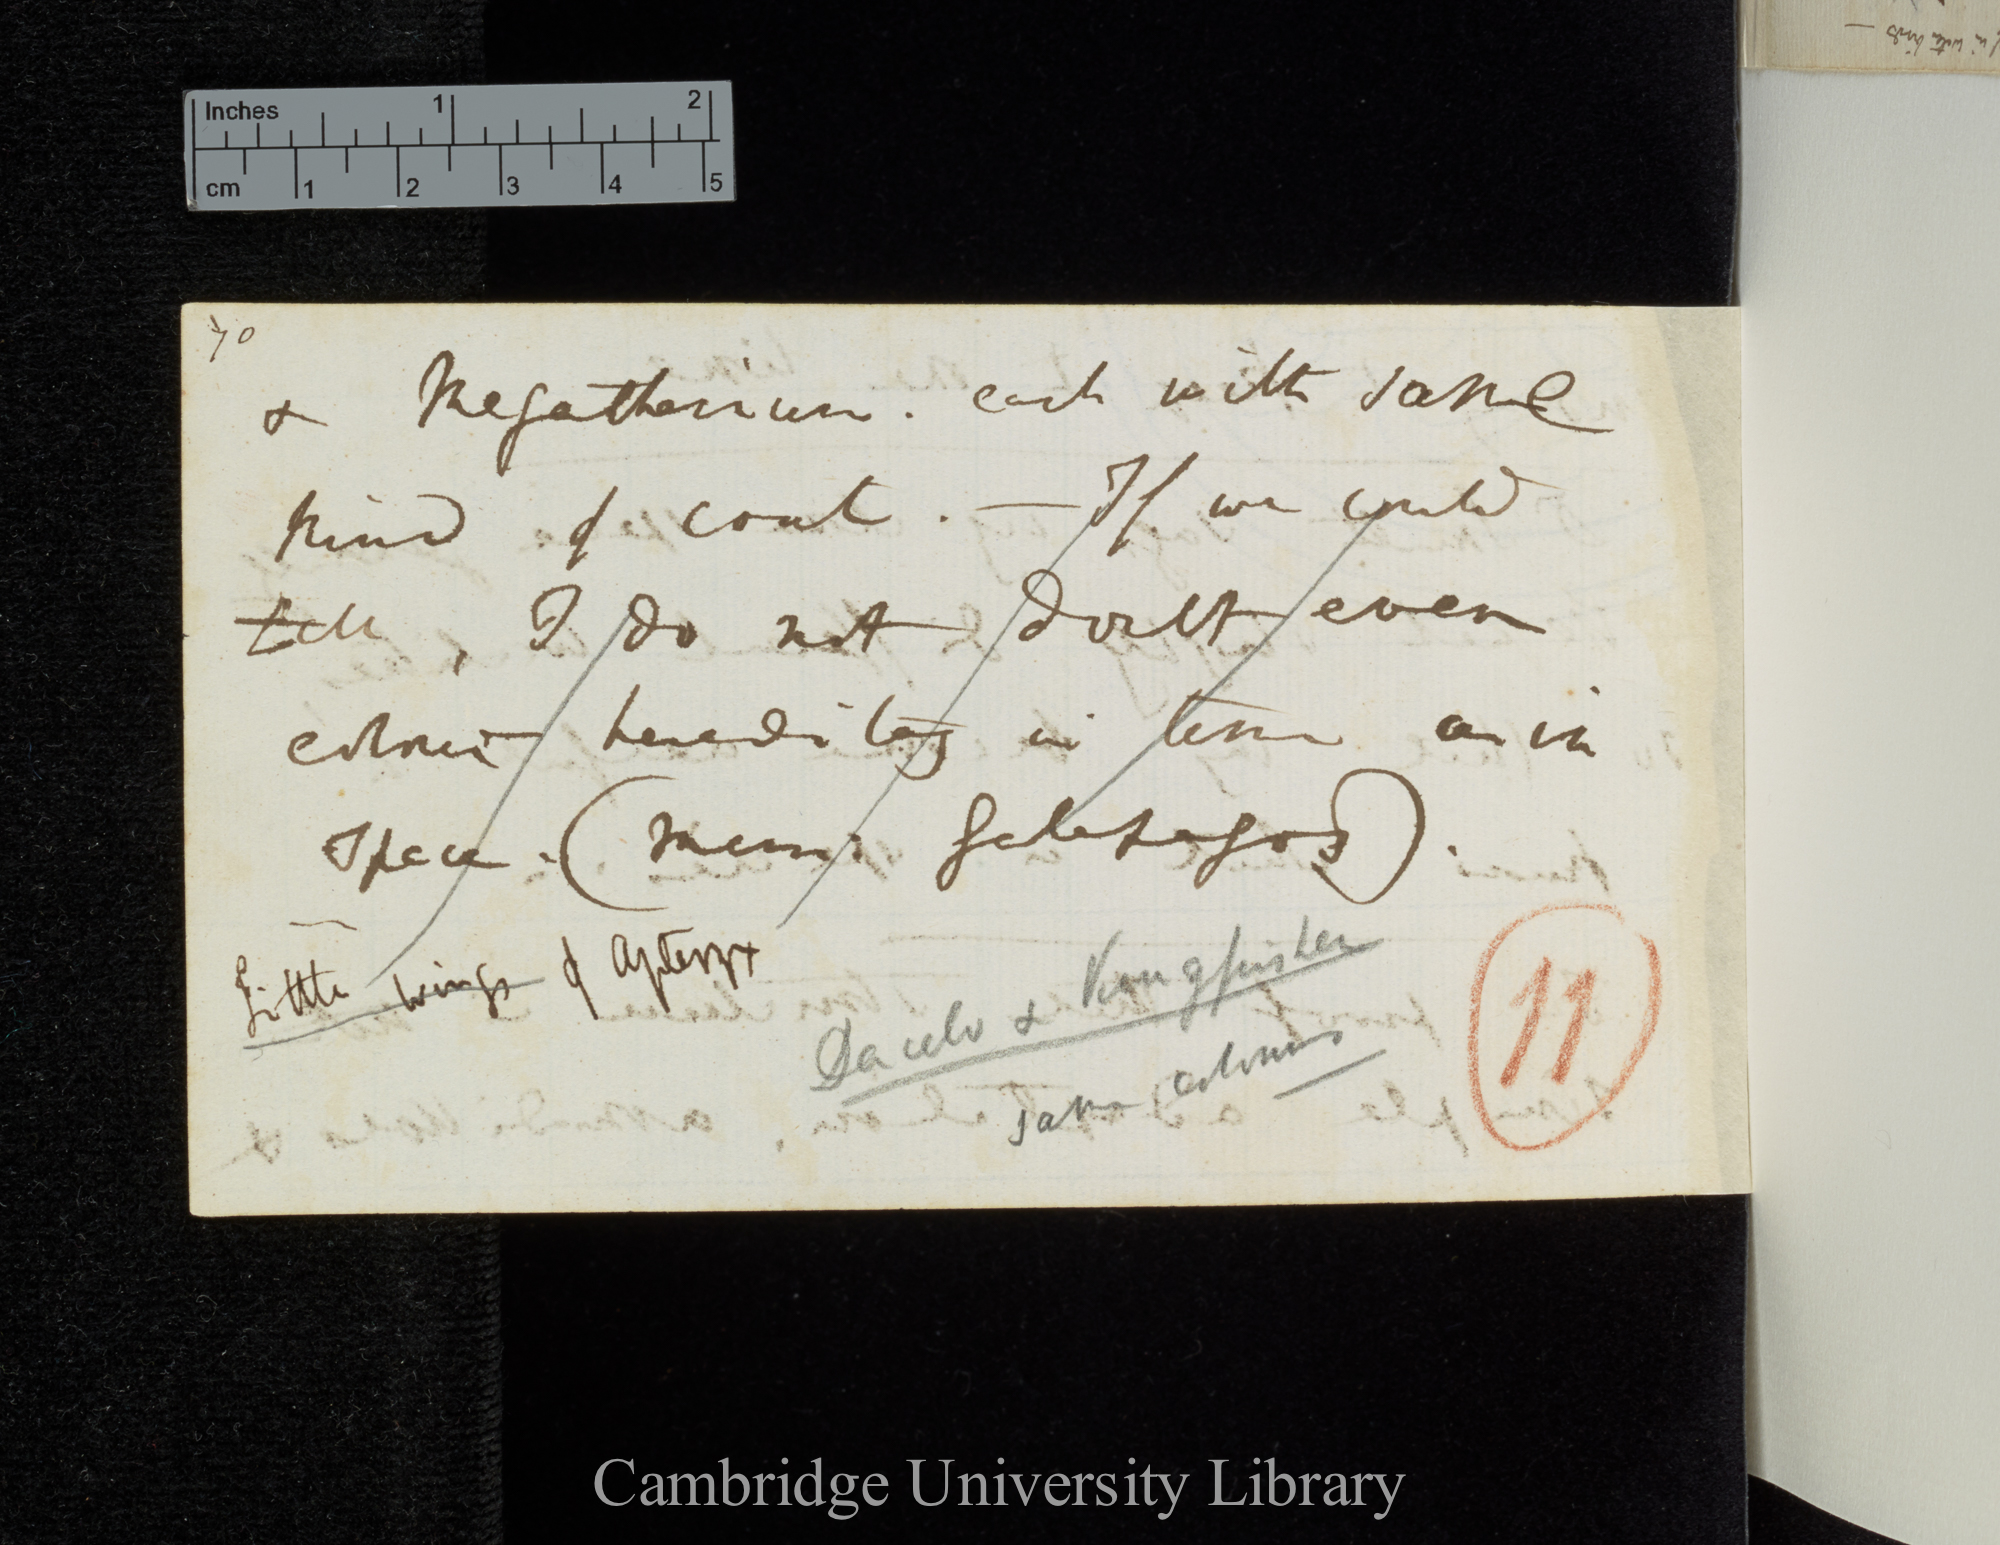 Inches 1 2
cm 1 2 3 4 5
70
& Megatherium. each with same
kind of coat. — If we could
tell, I do not doubt even
colour hereditary in time as in
space. (Mem: Galapagos).
Little wings of Apteryx
Dacelo & Kingfisher
same colours
11
Cambridge University Library